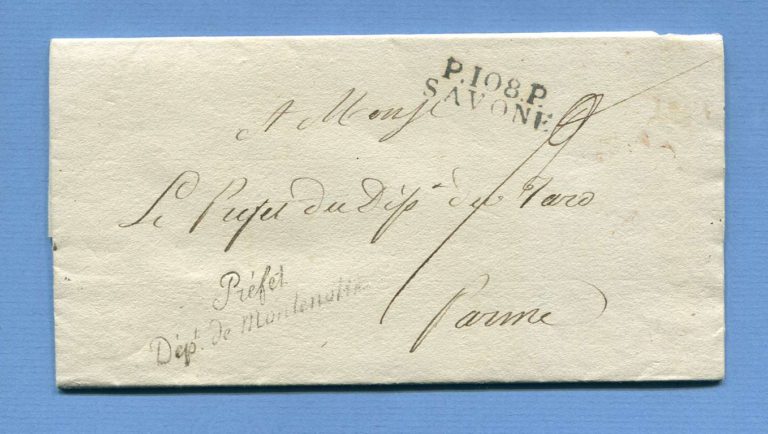 P.108.P.
SAVONE
A Monsr
Le Préfet du Dépt du Taro
Parme
Préfet
Dépt. de Montenotte